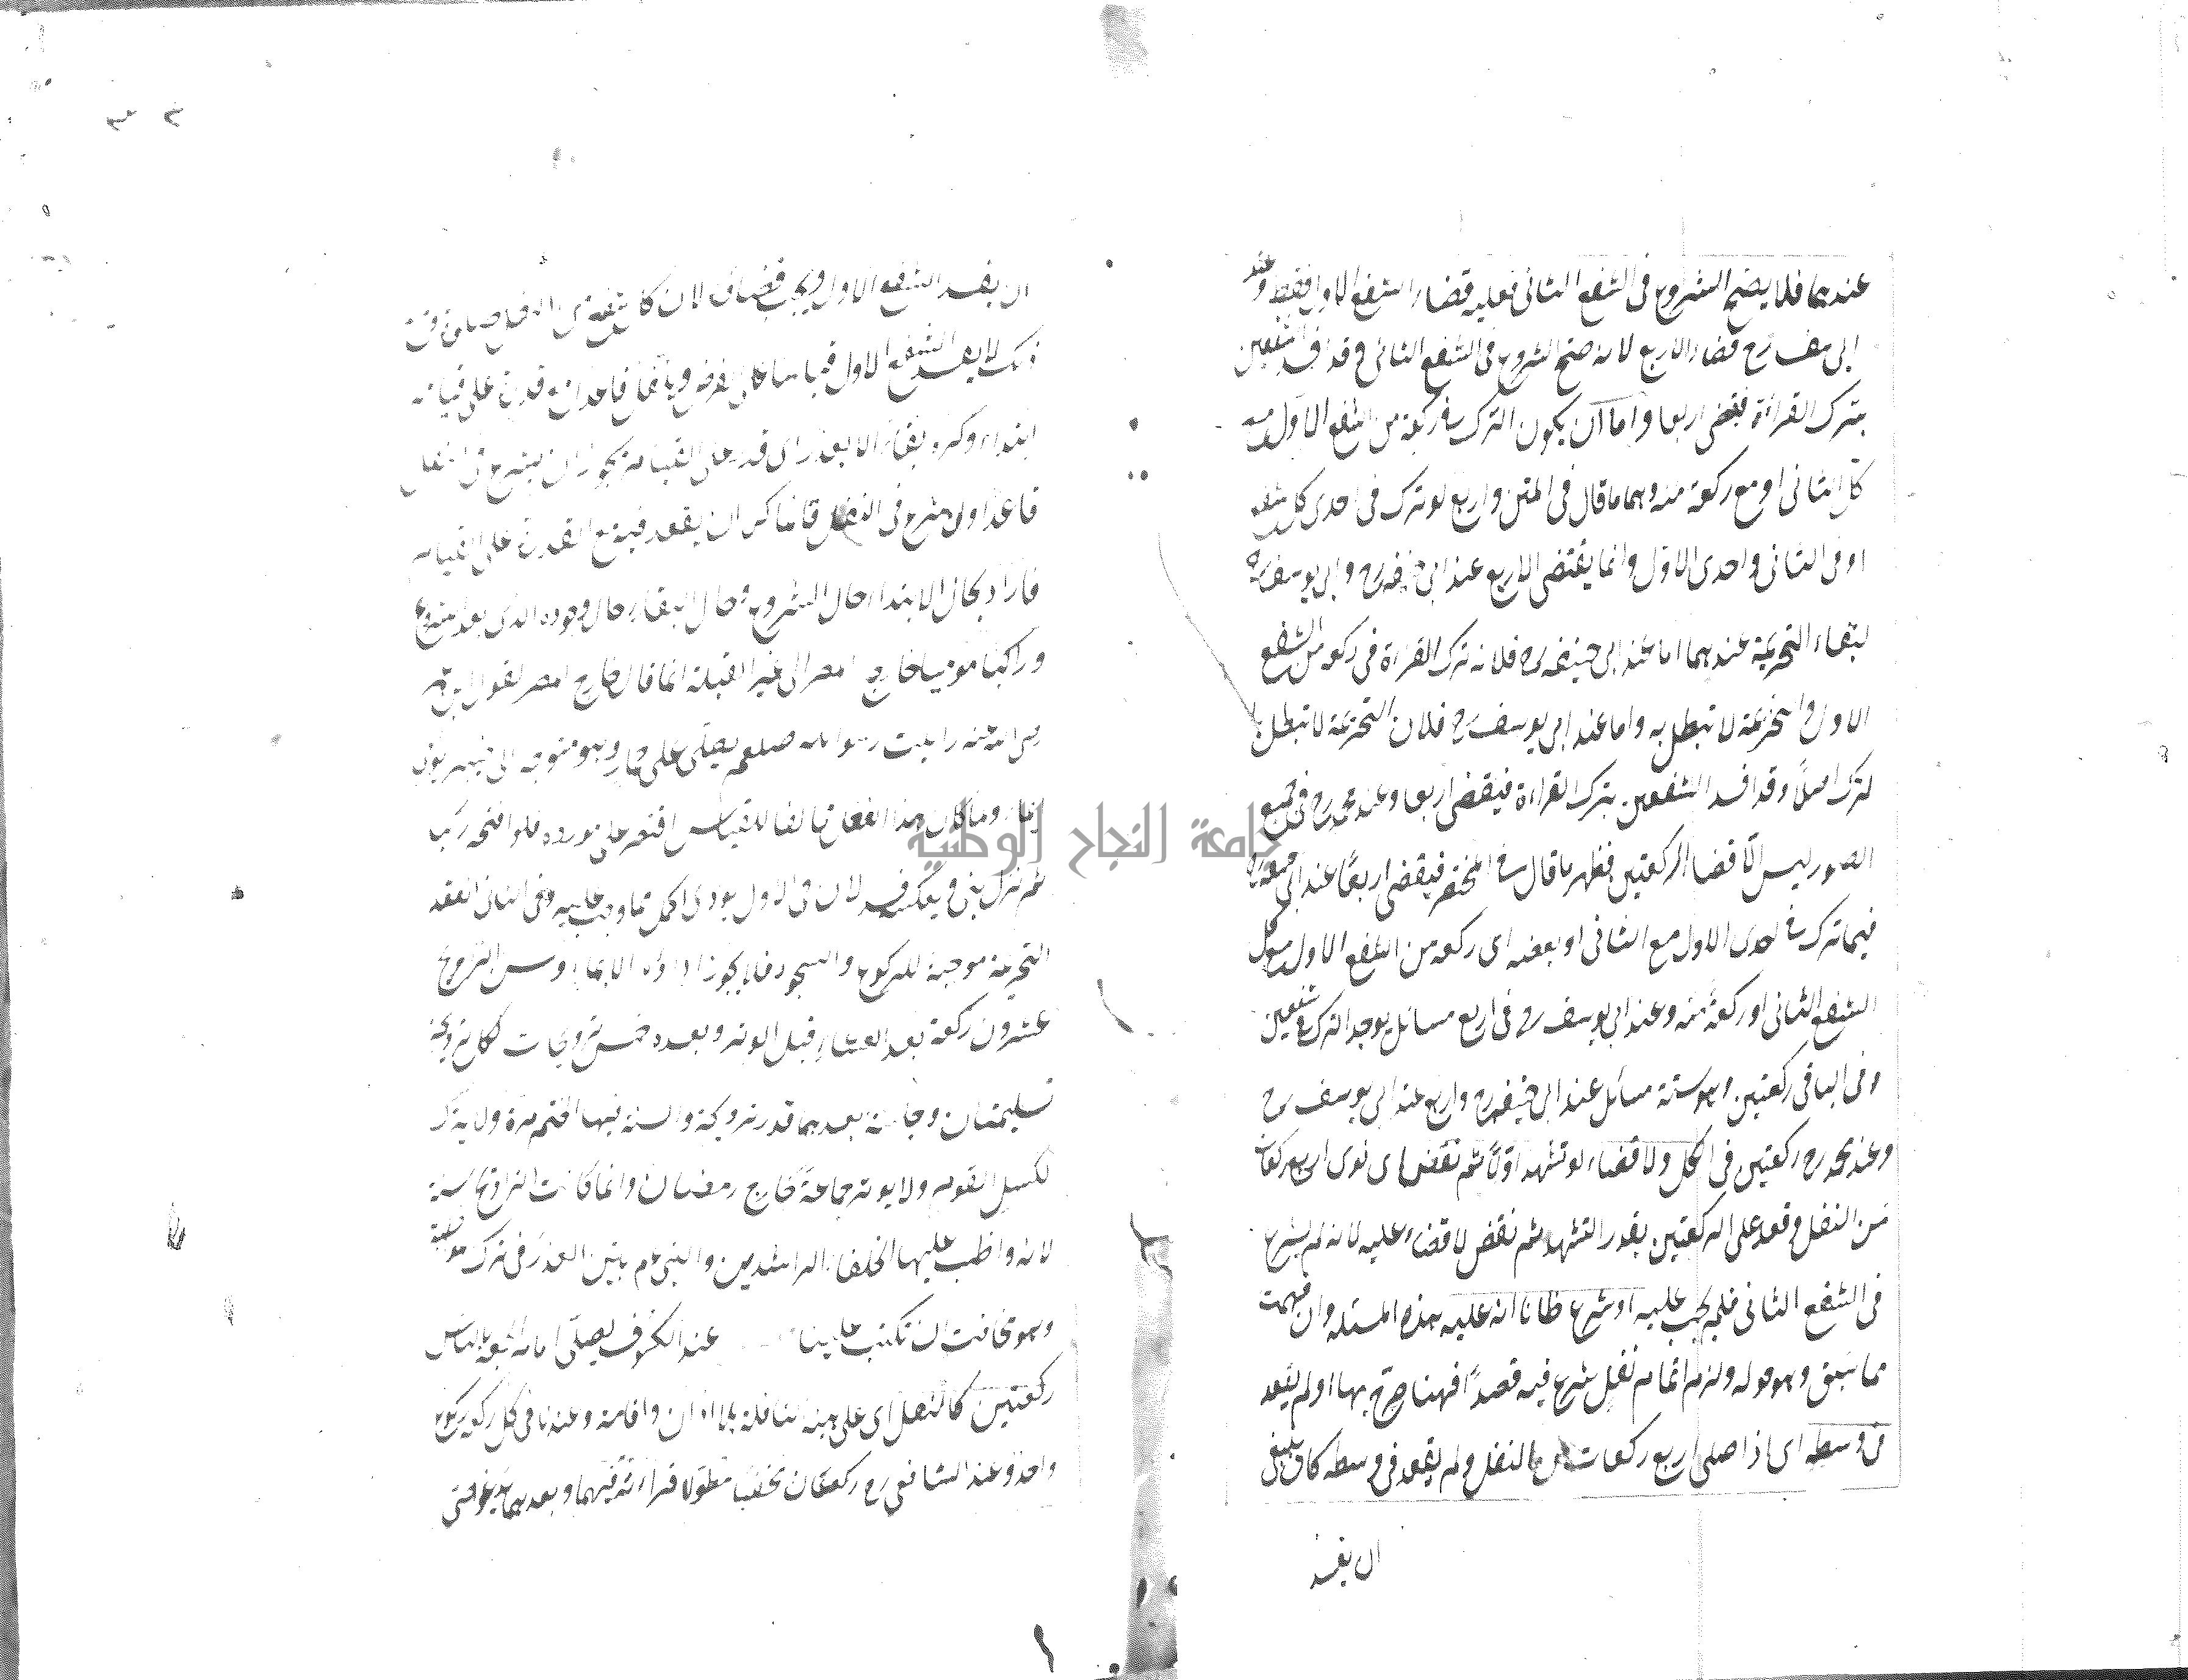 عندهما فلا يصح الشروع فى الشفع الثانى فعليه قضاء الشفع الاول فقط وعند
ابى يوسف رح قضاء الاربع لانه صح الشروع فى الشفع الثانى وقد افسد الشفعين
بترك القراءة فيقضى اربعا واما ان يكون الترك فى ركعة من الشفع الاول مع
كل الثانى او مع ركعة منه وهما ما قال فى المتن واربع لو ترك فى احدى كل شفع
او فى الثانى واحدى الاول وانما يقتضى الاربع عند ابى حنيفه رح وابى يوسف رح
لبقاء التحريمة عندهما اما عند ابى حنيفه رح فلانه ترك القراءة فى ركعة من الشفع
الاول والتحريمة لا تبطل به واما عند ابى يوسف رح فلان التحريمة لا تبطل
لترك اصلاً وقد افسد الشفعين بترك القراءة فيقضى اربعا وعند محمد رح فى جميع
الصور ليس الا قضاء الركعتين فظهر ما قال فى المختصر فيقضى اربعًا عند ابى حنيفه رح
فيما ترك فى احدى الاول مع الثانى او بعضه اى ركعة من الشفع الاول مع كل
الشفع الثانى او ركعة منه وعند ابى يوسف رح فى اربع مسائل يوجد الترك فى شفعين
وفى الباقى ركعتين وهو ستة مسائل عند ابى حنيفه رح واربع عند ابى يوسف رح
وعند محمد رح ركعتين فى الكل ولا قضاء لو تشهد اولاً ثم نقض اى نوى اربع ركعات
من النفل وقعد على الركعتين بقدر التشهد ثم نقض لا قضاء عليه لانه لم يشرع
فى الشفع الثانى فلم يجب عليه او شرع ظانا انه عليه هذه المسئلة وان فهمت
مما سبق وهو قوله ولزم اتمام نفل شرع فيه قصداً فههنا صرح بها او لم يقعد
فى وسطه اى اذا صلى اربع ركعات من النفل ولم يقعد فى وسطه كان ينبغى
ان يفسد
ان يفسد الشفع الاول ويجب قضاؤه لان كل شفع من النفل صلوة ومع
ذلك لا يفسد الشفع الاول قياسا على الفرض ويتنفل قاعدا مع قدرة على قيامه
ابتداء وكره بقاءً الا بعذر اى قدر على القيام يجوز ان يشرع فى النفل
قاعدا وان شرع فى النفل قائما كره ان يقعد فيه مع القدرة على القيام
فاراد بحال الابتداء حال الشروع وحال البقاء حال وجوده الذى بعد الشروع
وراكبا موميا خارج المصر الى غير القبلة انما قال خارج المصر لقول ابن عمر
رضى الله عنه رايت رسول الله صلعم يصلى على حمار وهو متوجه الى خيبر يومى
ايماء وما كان هذا الفعل مخالفا للقياس اقتصر على مورده فلو افتتحه راكبا
ثم نزل بنى وبعكسه فسد لان فى الاول يؤدى اكمل مما وجب عليه وفى الثانى انعقد
التحريمة موجبة للركوع والسجود فلا يجوز اداؤه بالايماء وسن التراويح
عشرون ركعة بعد العشاء قبل الوتر وبعده خمس ترويحات لكل ترويحة
تسليمتان وجلسة بعدهما قدر ترويحة والسنة فيها الختم مرة ولا يترك
لكسل القوم ولا يوتر جماعة خارج رمضان وانما كانت التراويح سنة
لانه واظب عليها الخلفاء الراشدين والنبى عم بين العذر فى ترك المواظبة
وهو مخافة ان تكتب علينا عند الكسوف يصلى امام الجمعة بالناس
ركعتين كالنفل اى على هيئة النافلة بلا اذان واقامة وعندنا فى كل ركعة ركوع
واحد وعند الشافعى رح ركوعان مخفيا مطولا قراءته فيهما وبعدهما يدعو حتى
جامعة النجاح الوطنية